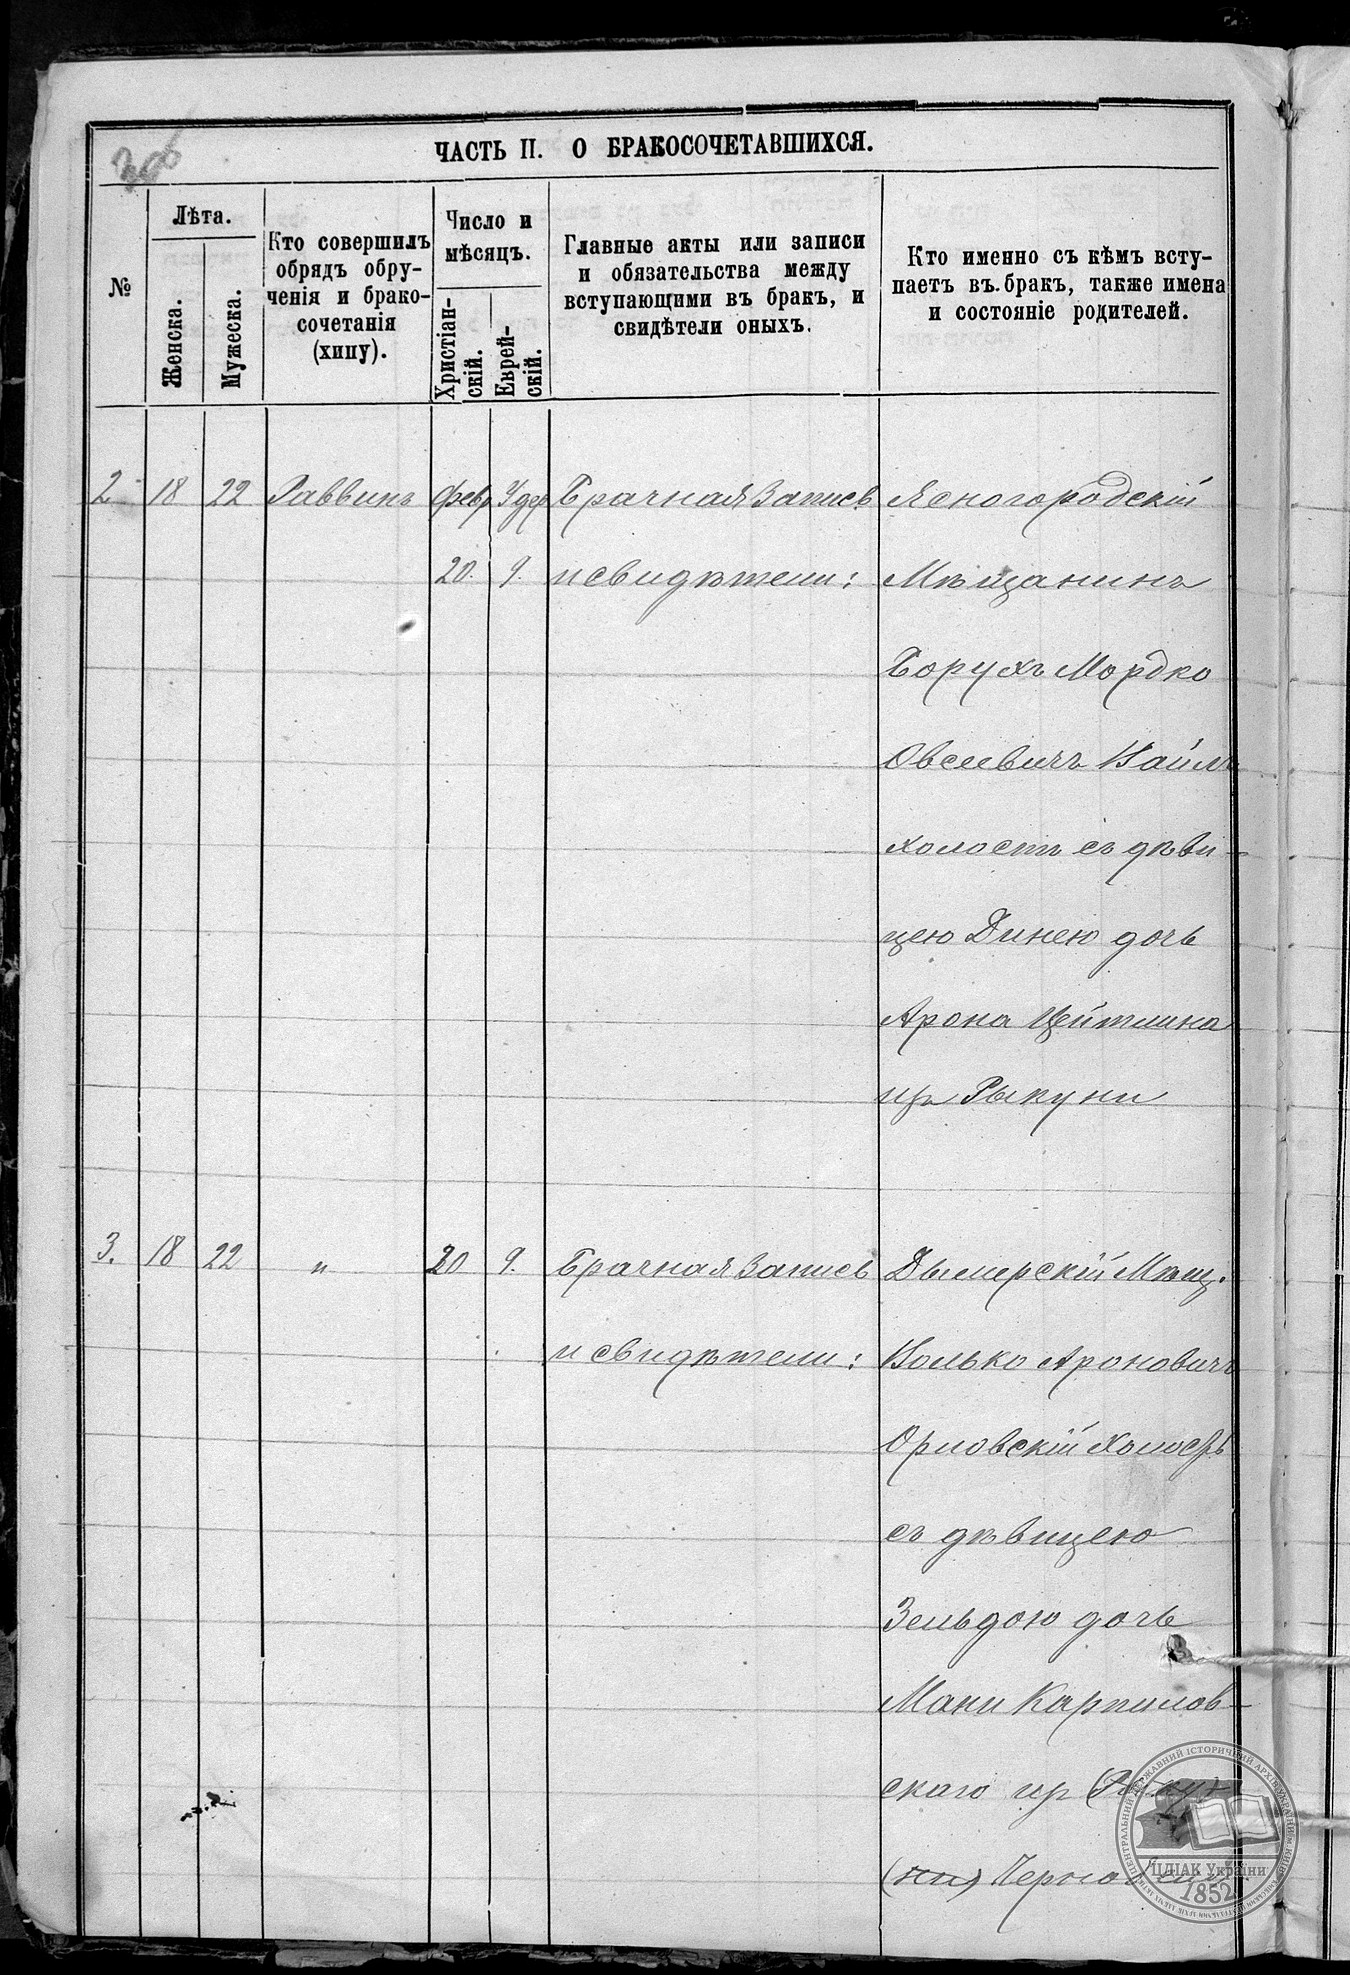 306
ЧАСТЬ II. О БРАКОСОЧЕТАВШИХСЯ.
№
Лѣта.
Женска.
Мужеска.
Кто совершилъ
обрядъ обру-
ченія и брако-
сочетанія
(хипу).
Число и
мѣсяцъ.
Христіан-
скій.
Еврей-
скій.
Главные акты или записи
и обязательства между
вступающими въ бракъ, и
свидѣтели оныхъ.
Кто именно съ кѣмъ всту-
паетъ въ бракъ, также имена
и состояніе родителей.
2 18 22 Раввинъ Февр Удер Брачная Запись Ясногородскій
20. 9. и свидѣтели: Мѣщанинъ
Борухъ Мордко
Овсеевичъ
холостъ съ дѣви-
цею Динею дочь
Арона Цейтлина
изъ Рыкуни
3. 18 22 " 20 9. Брачная Запись Дымерскій Мѣщ.
и свидѣтели: Волько Ароновичъ
Орловскій Холостъ
съ дѣвицею
Зельдою дочь
Мани Карпилов-
скаго из (Рыку)
(ни)
ЦЕНТРАЛЬНИЙ ДЕРЖАВНИЙ ІСТОРИЧНИЙ АРХІВ УКРАЇНИ, М. КИЇВ
ЦДІАК України
1852